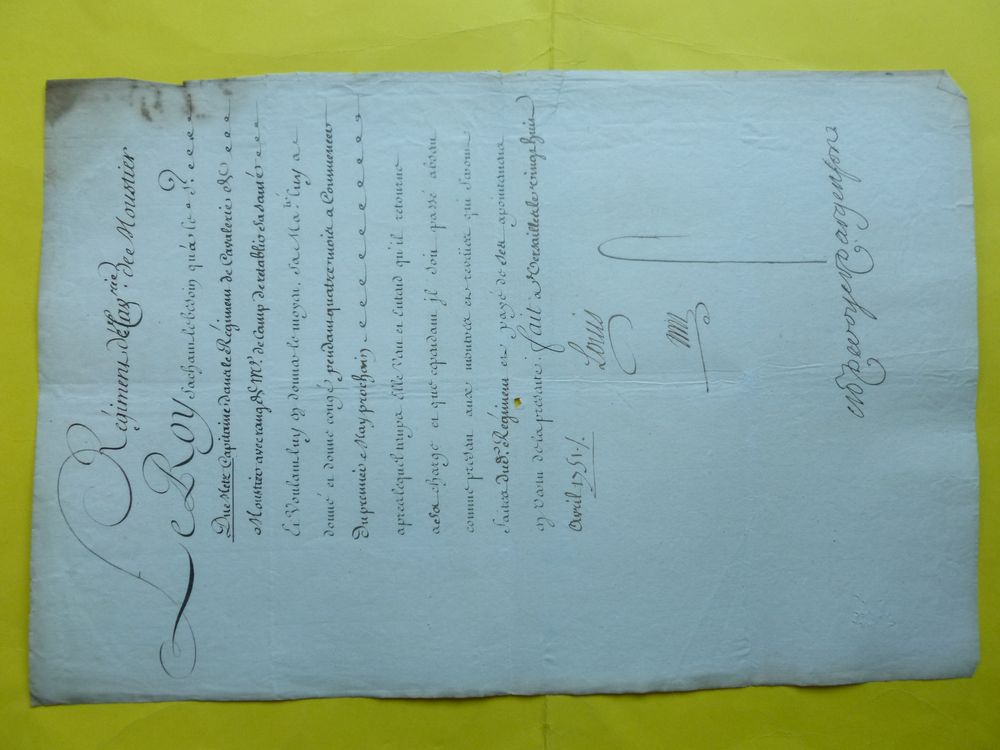 Régiment de Cav.rie de Moustier
LE ROY sachant le besoin qu'a le s.r
Du Metz Capitaine dans le Régiment de Cavalerie de
Moustier avec rang de M.e de Camp de retablir sa santé
Et Voulant luy en donner le moyen, Sa Ma.té luy a
donné et donne congé pendant quatre mois a Commencer
Du premier May prochain
apres lequel temps elle veut et entend qu'il retourne
a sa charge et que cependant il soit passé absent
comme present aux montres et reveües qui seront
faites dudt. Régiment et payé de ses apointemens
en vertu de la presente. fait a Versailles le vingt huit
Avril 1751./.
Louis
M De Voyer D'argenson